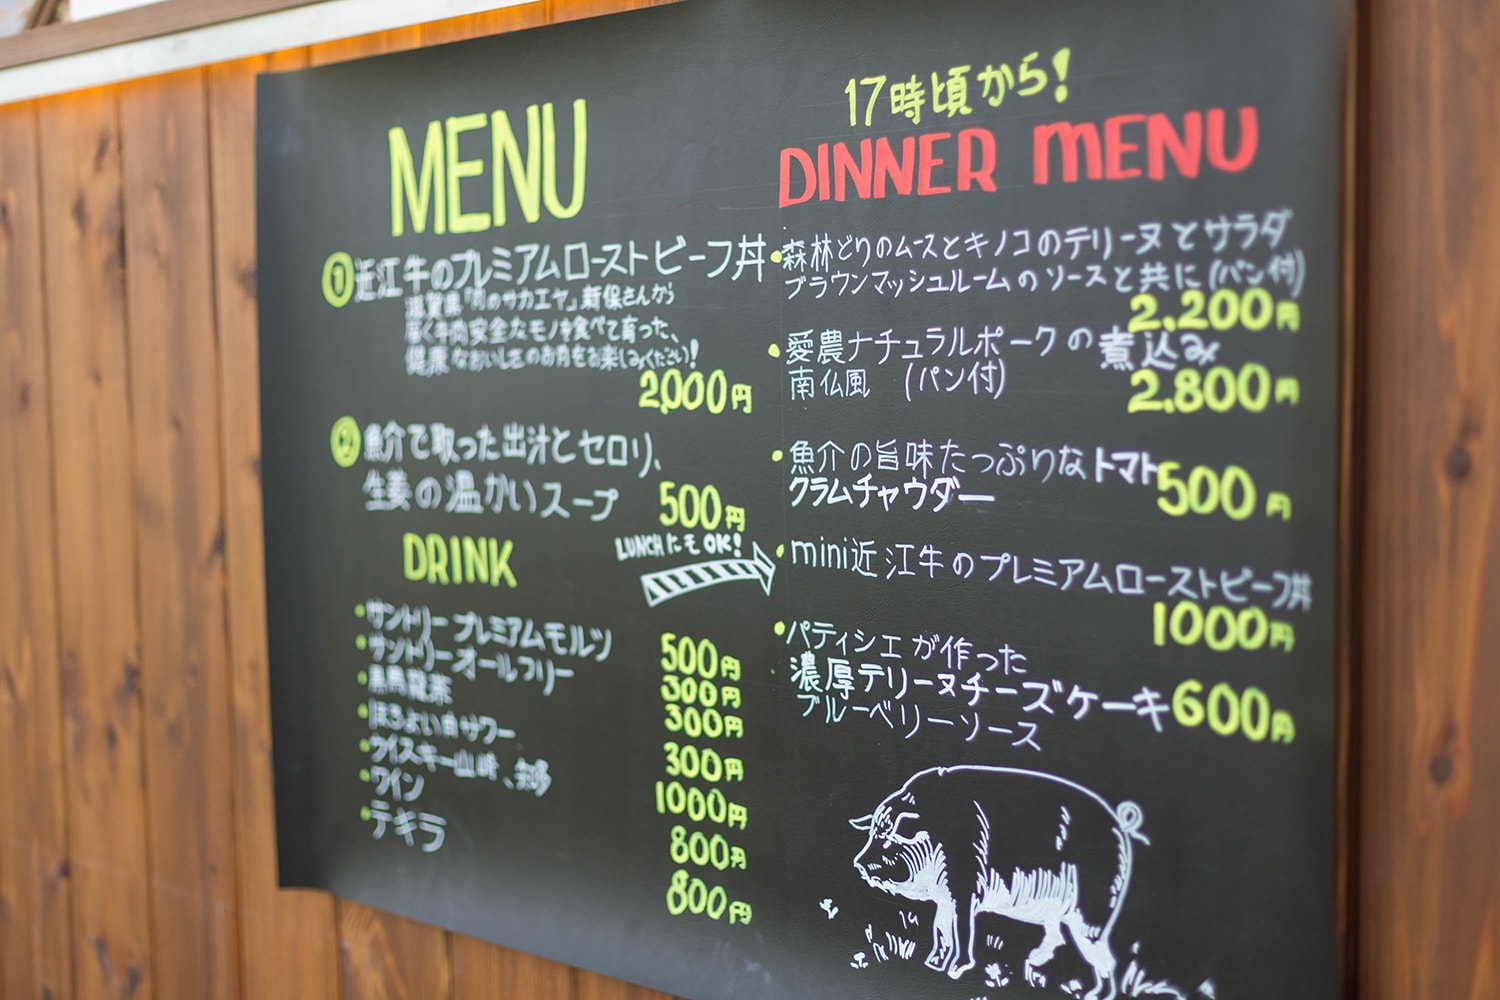 MENU
① 近江牛のプレミアムローストビーフ丼
滋賀県「肉のサカエヤ」新保さんから
届く牛肉安全なモノを食べて育った、
健康なおいしさのお肉をお楽しみください!
2,000円
② 魚介で取った出汁とセロリ、
生姜の温かいスープ
500円
LUNCHにもOK!
DRINK
・サントリープレミアムモルツ 500円
・サントリーオールフリー 300円
・黒烏龍茶 300円
・ほろよい サワー 300円
・ウイスキー山崎、知多 1000円
・ワイン 800円
・テキラ 800円
17時頃から!
DINNER MENU
・森林どりのムースとキノコのテリーヌとサラダ
ブラウンマッシュルームのソースと共に(パン付)
2,200円
・愛農ナチュラルポークの煮込み
南仏風 (パン付)
2,800円
・魚介の旨味たっぷりなトマト
クラムチャウダー 500円
・mini近江牛のプレミアムローストビーフ丼
1000円
・パティシエが作った
濃厚テリーヌチーズケーキ 600円
ブルーベリーソース